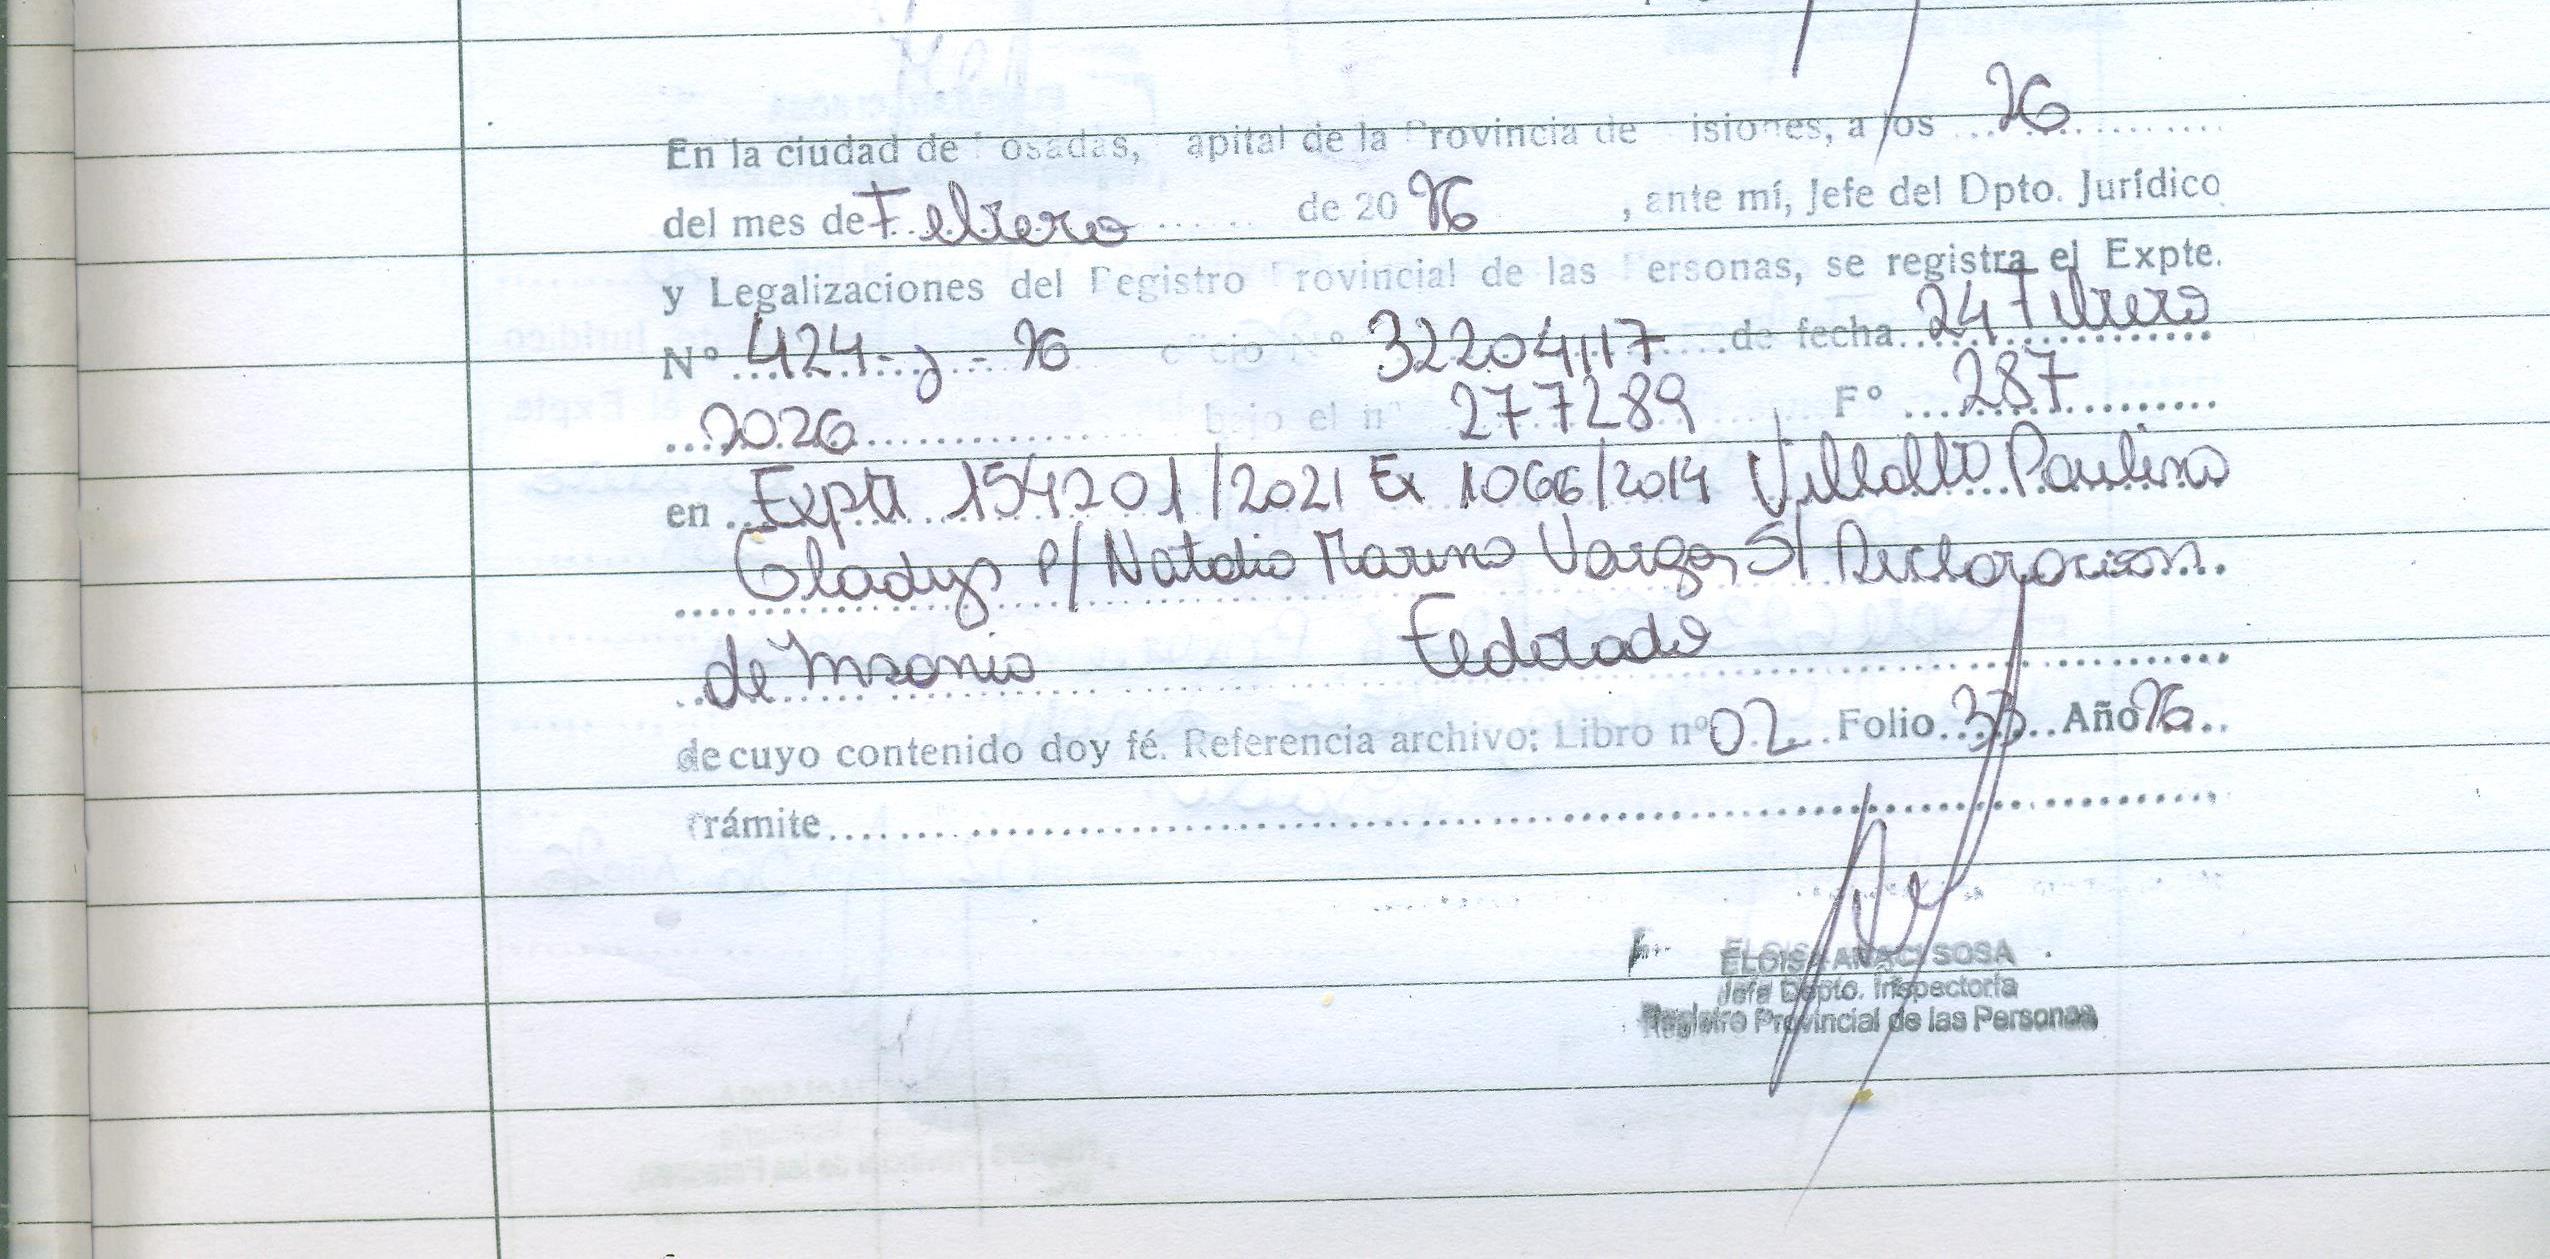 En la ciudad de Posadas, Capital de la Provincia de Misiones, a los 26
del mes de Febrero de 2026, ante mí, Jefe del Dpto. Jurídico
y Legalizaciones del Registro Provincial de las Personas, se registra el Expte.
N° 424-J-26 oficio N° 32204117 de fecha 24 Febrero
2026 bajo el n° 277289 F° 287
en Expte 154201/2021 Ex 1066/2014 Villalba Paulina
Gladys P/ Natalio Marino Vargas S/ Declaracion
de Insania Eldorado
de cuyo contenido doy fé. Referencia archivo: Libro n° 02 Folio 33 Año 26
Trámite
ELOISA ARACI SOSA
Jefa Dpto. Inspectoría
Registro Provincial de las Personas